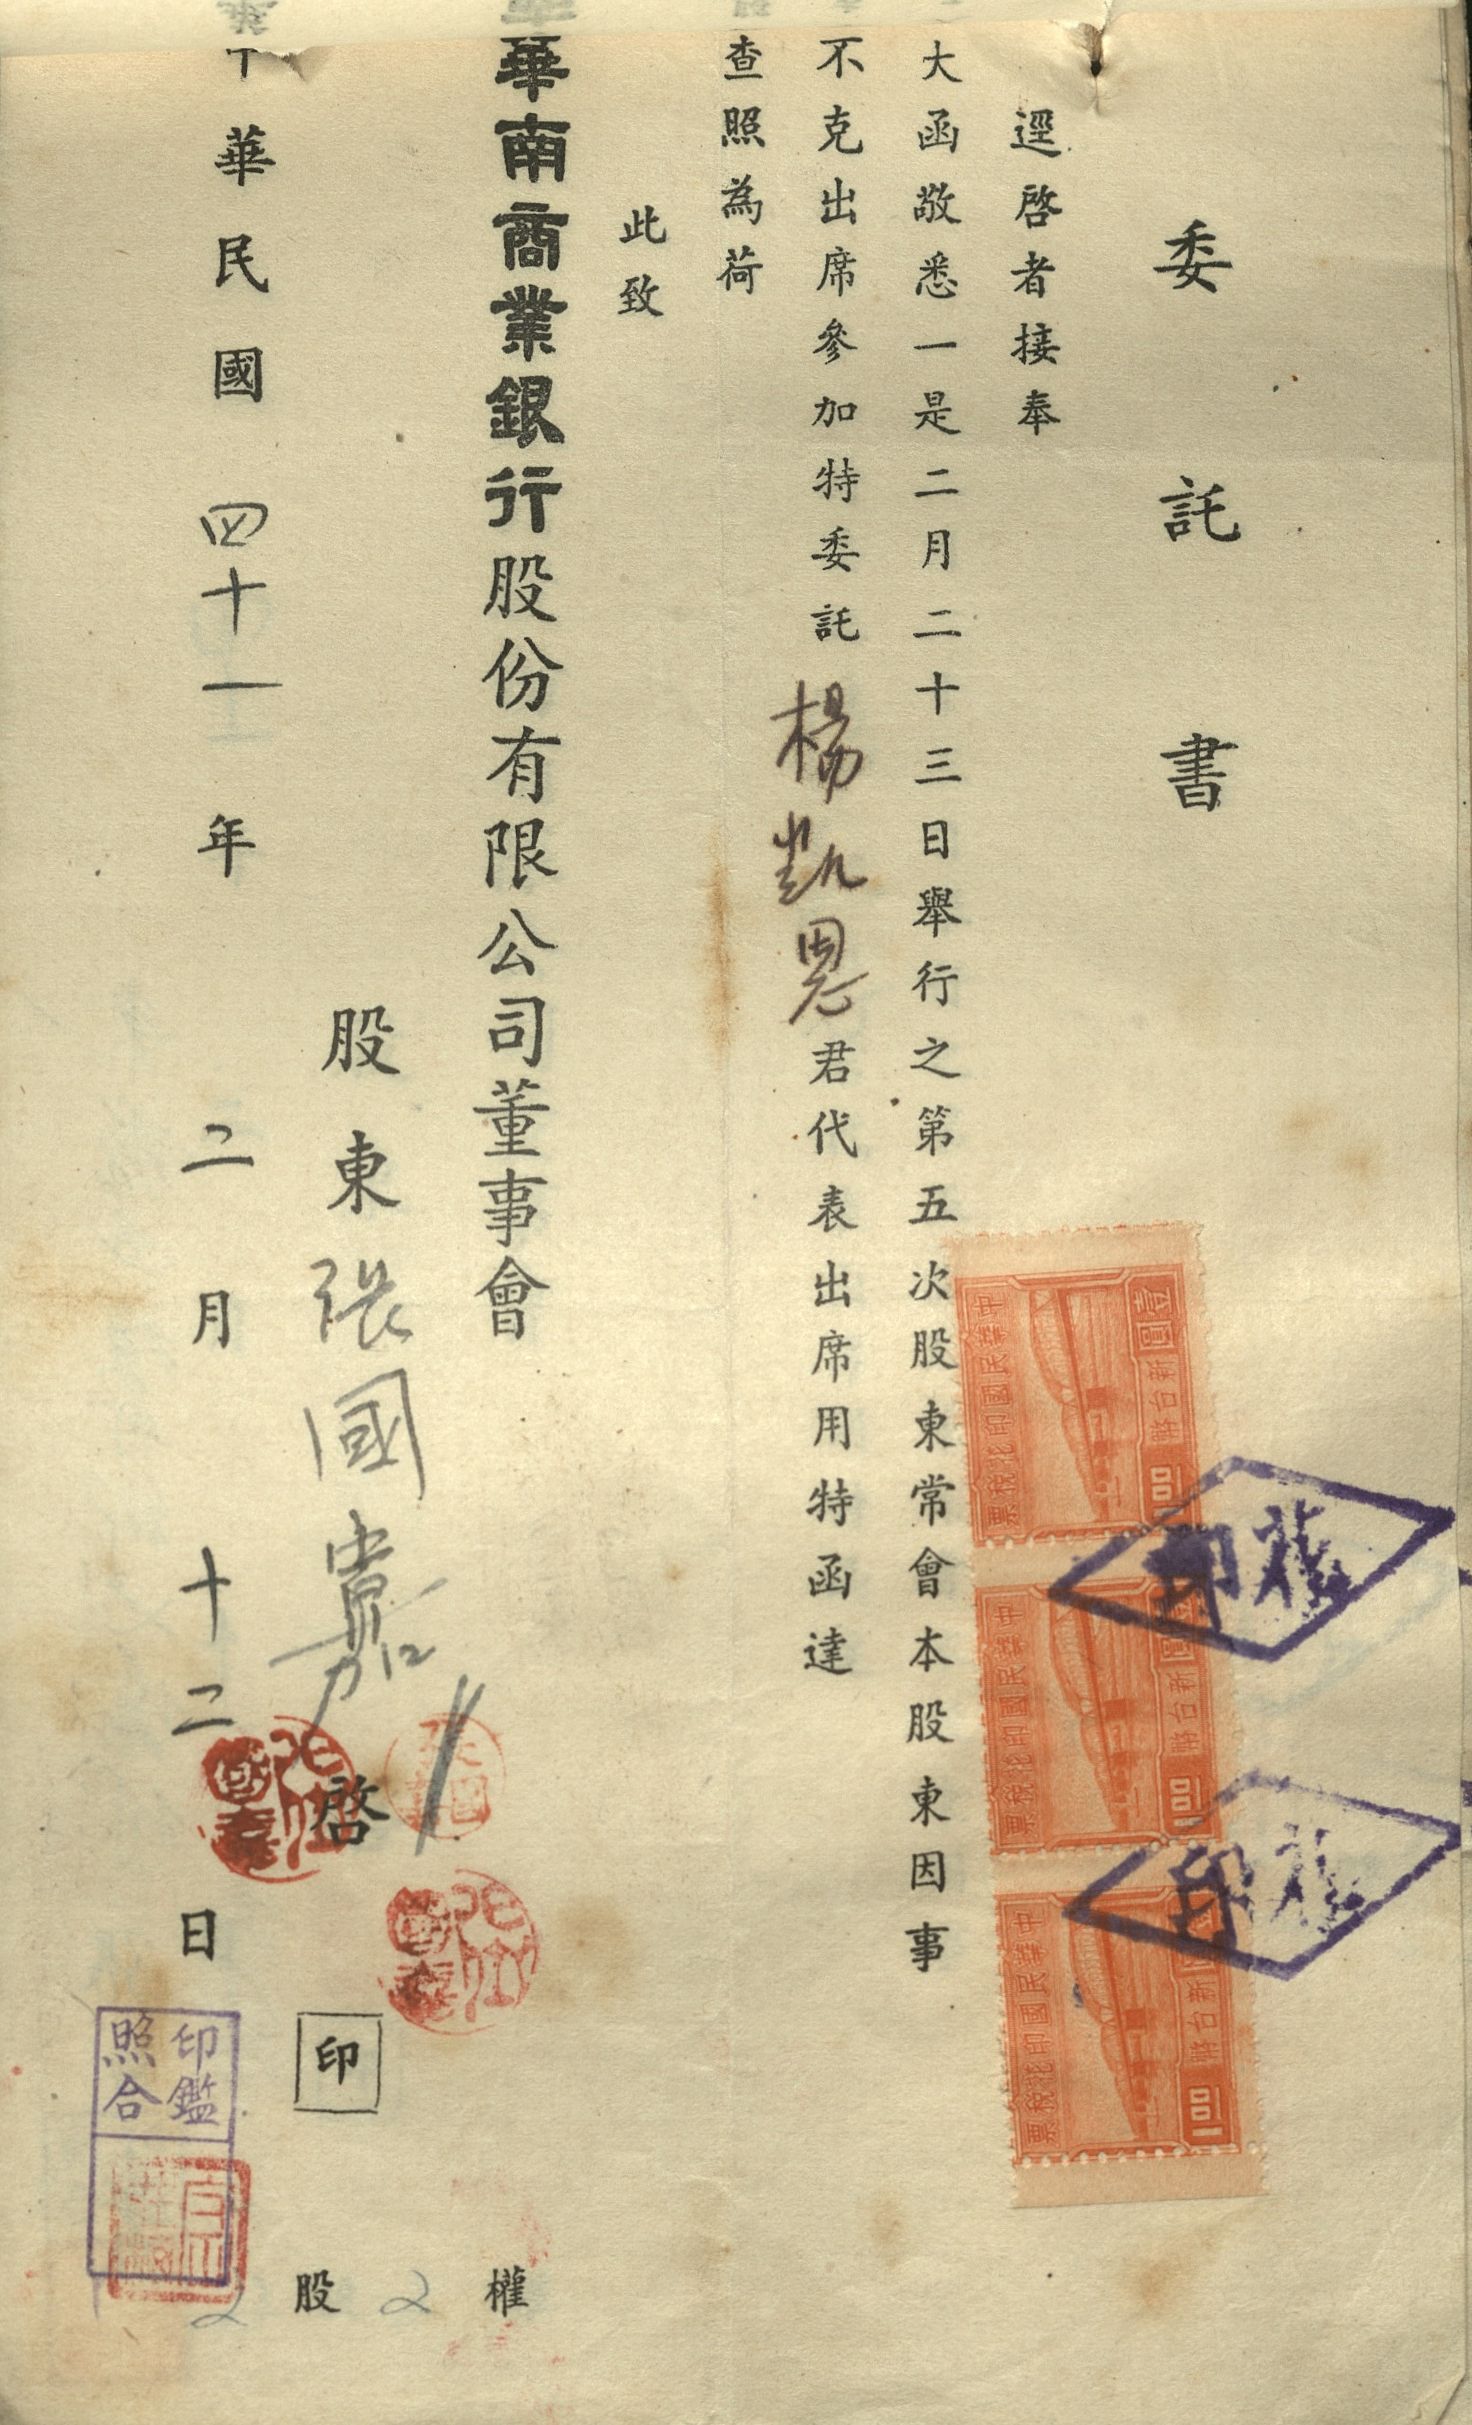 委託書
逕啓者接奉
大函敬悉一是二月二十三日舉行之第五次股東常會本股東因事
不克出席參加特委託楊凱恩君代表出席用特函達
查照為荷
此致
華南商業銀行股份有限公司董事會
股東張國嘉啓
印
2股2權
中華民國四十一年二月十二日
印鑑
照合
壹圓新台幣
中華民國印花稅票
圓新台幣
中華民國印花稅票
新台幣
中華民國印花稅票